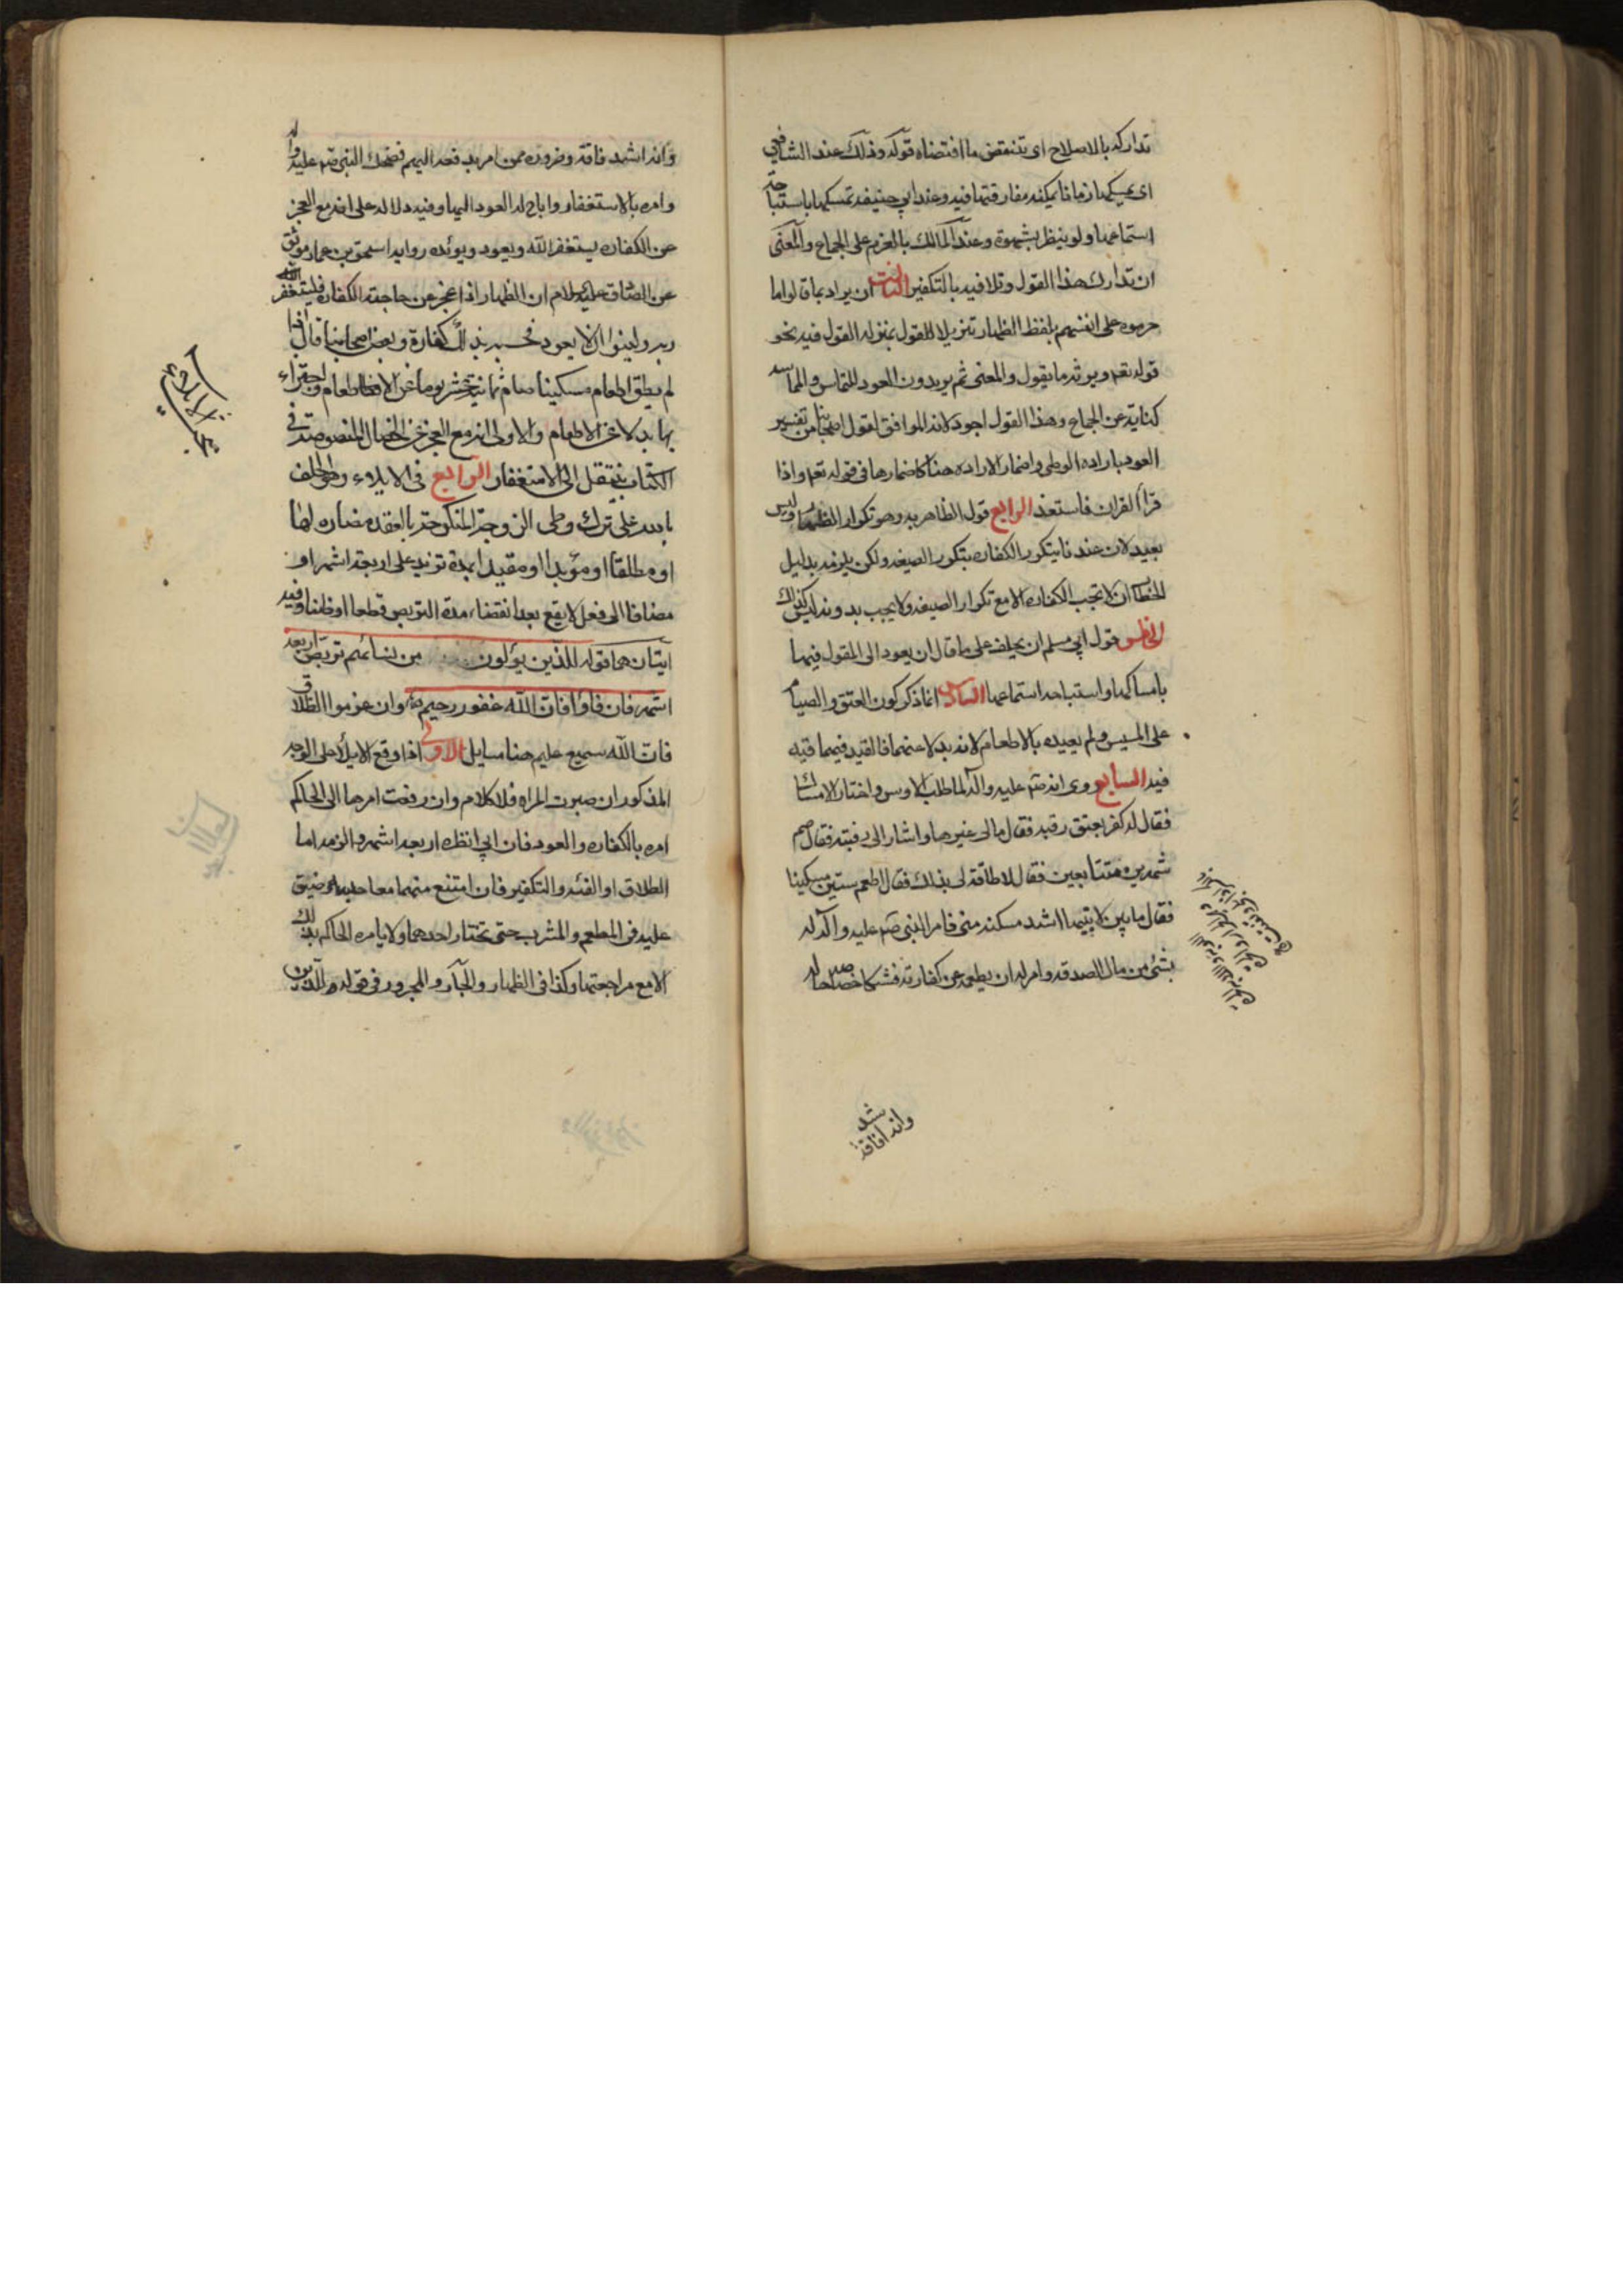 تداركه بالاصلاح اى تنقض ما اقتضاه قوله وذلك عند الشافعي
اى يمسكها زمانا يمكنه مفارقتها فيه وعند ابي حنيفه تمسكها باستباحة
استماعها ولو بنظر بشهوة وعند المالك بالعزم على الجماع والمعنى
ان تدارك هذا القول وتلافيه بالتكفير الثالث ان يراد بما قالوا ما
حرموه على انفسهم بلفظ الظهار تنزيلا للقول بمنزله القول فيه نحو
قوله تعه ويرثه ما يقول والمعنى ثم يريدون العود للتماس والمماسه
كناية عن الجماع وهذا القول اجود لانه الموافق لقول اصحابنا من تفسير
العود باراده الوطى واضمار الاراده هنا كاضمارها فى قوله تعه واذا
قرأ القران فاستعذ الرابع قول الظاهريه وهو تكرار الظهار وليس
بعيد لان عندنا يتكرر الكفاره بتكرر الصيغه ولكن يلزمه بدليل
الخطاب ان لا تجب الكفاره الا مع تكرار الصيغه ولا يجب بدونه وليس كذلك
الخامس قول ابي مسلم ان يحلف على ما قال ان يعود الى المقول فيها
بامساكها واستباحه استماعها السادس انما ذكر كون العتق والصيام
على المسيس ولم يعيده بالاطعام لانه بدلا عنهما فالقيد فيهما قيد
فيه السابع روى انه صم عليه واله لما طلب الاوس واختار الامساك
فقال له كفر بعتق رقبه فقال مالى غيرها واشار الى رقبته فقال صم
شهرين متتابعين فقال لا طاقة لى بذلك فقال اطعم ستين مسكينا
فقال ما بين لابتيها اشد مسكنه منى فامر النبى صم عليه واله له
بشئ من مال الصدقه وامر له ان يطعمه عن كفارته فشكا خصاصه حاله
وانه اشد فاقة
وانه اشد فاقة وضروره ممن امر بدفعه اليهم فضحك النبى صم عليه واله
وامره بالاستغفار واباح له العود اليها وفيه دلاله على انه مع العجز
عن الكفاره يستغفر الله ويعود ويؤيده روايه اسحق بن عمار موثق
عن الصادق عليه السلام ان الظهار اذا عجز صاحبه الكفاره فليستغفر الله
ربه ولينو ان لا يعود فحسبه بذلك كفارة وبعض اصحابنا قال اذا
لم يطق اطعام مسكينا صام ثمانية عشر يوما
بها بدلا عن الاطعام والاولى انه مع العجز عن الخصال المنصوصة فى
الكتاب ينتقل الى الاستغفار الرابع فى الايلاء وهو الحلف
بالله على ترك وطى الزوجة المنكوحة بالعقد مضاره لها
اومطلقا او مؤبدا او مقيدا بمدة تزيد على اربعة اشهر او
مضافا الى فعل لا يقع بعد انقضاء مدة التربص قطعا او ظنا وفيه
ايتان هما قوله للذين يؤلون من نسائهم تربص اربعه
اشهر فان فاؤا فان الله غفور رحيم وان عزموا الطلاق
فان الله سميع عليم هنا مسايل الاولى اذا وقع الايلاء على الوجه
المذكور ان صبرت المراه فلا كلام وان رفعت امرها الى الحاكم
امره بالكفاره والعود فان ابي انظره اربعه اشهر والزمه اما
الطلاق او الفئه والتكفير فان امتنع منهما معا حبسه وضيق
عليه فى المطعم والمشرب حتى تختار احدهما ولا يامره الحاكم بذلك
الا مع مراجعتها وكذا فى الظهار والجار والمجرور فى قوله وللذين
الايلاء